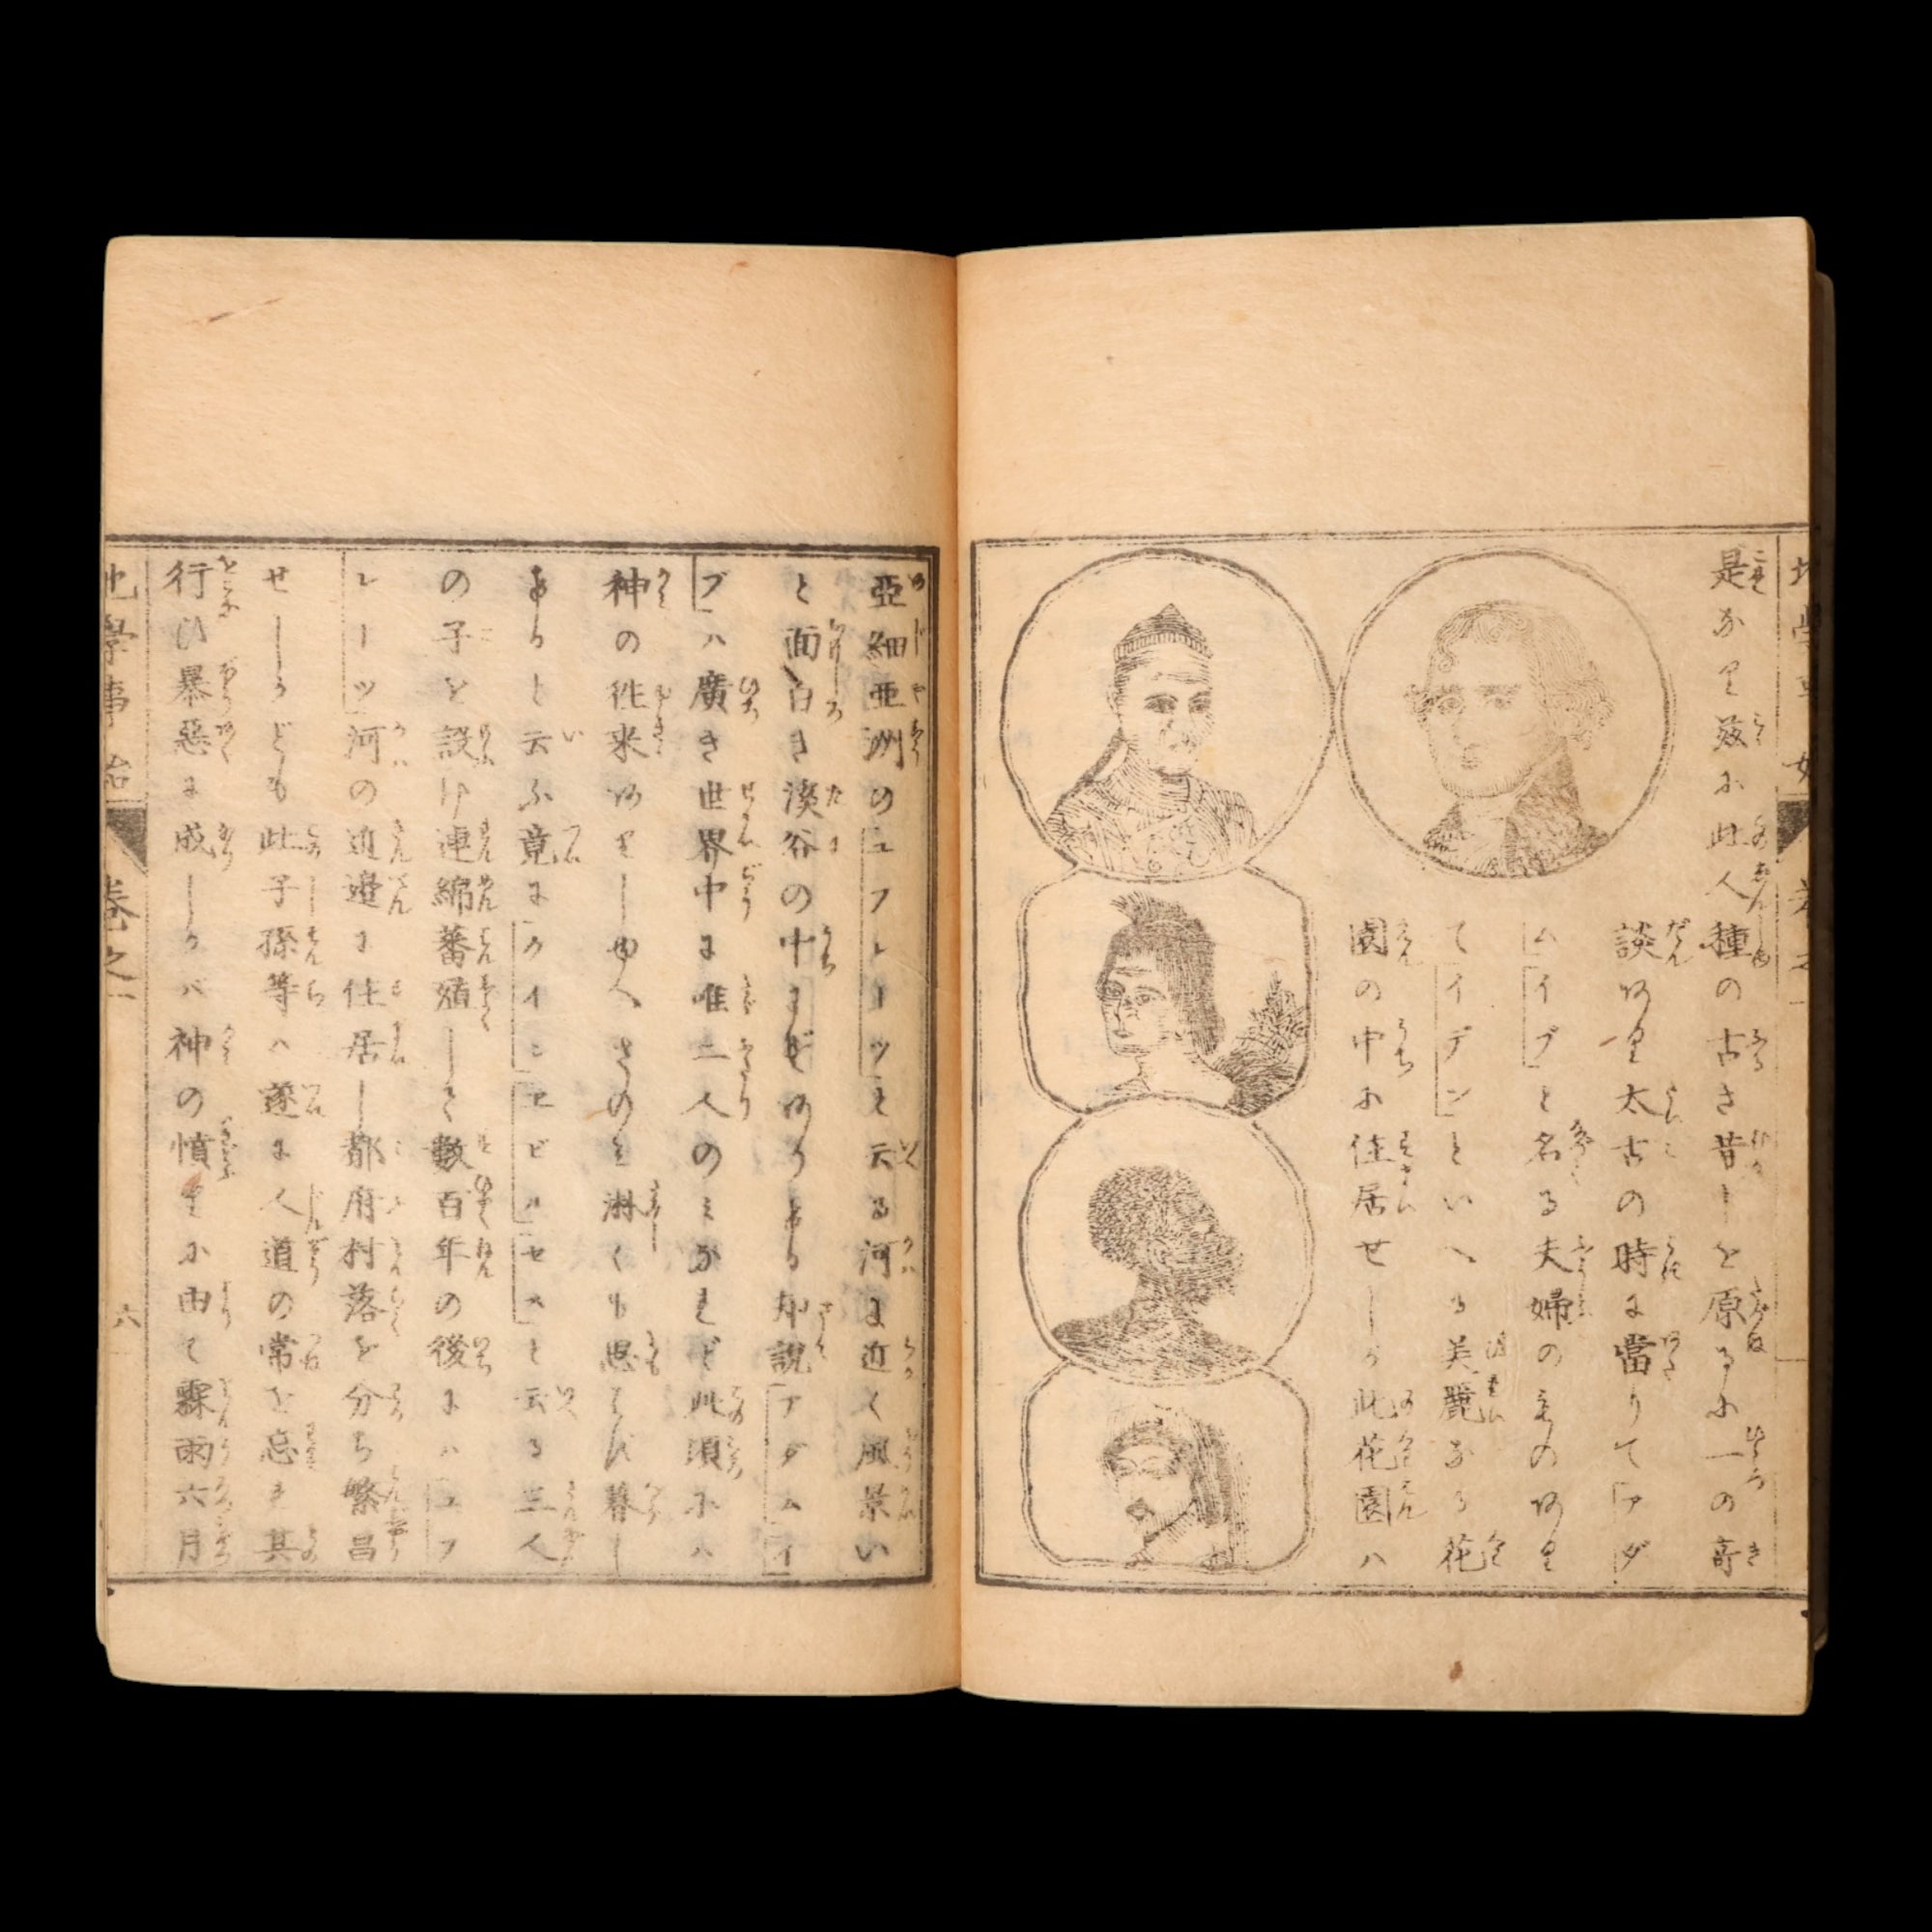 是なり茲に此人種の古き昔しを原るに一の奇
談あり太古の時に當りて「アダ
ム」「イブ」と名る夫婦の者のあり
て「イデン」といへる美麗なる花
園の中に住居せしが此花園ハ
亞細亜洲の「ユフレーツ」と云る河に近く風景い
と面白き渓谷の中にぞありける却説「アダム」「イ
ブ」ハ廣き世界中に唯二人のミなれど此頃にハ
神の徃来ありしゆへさのミ淋くも思はで暮し
けると云ふ竟に「カイン」「エビル」「セス」と云る三人
の子を設け連綿蕃殖して數百年の後にハ「ユフ
レーツ」河の近邉に住居し都府村落を分ち繁昌
せしかども此子孫等ハ遂に人道の常を忘れ其
行ひ暴惡に成しかバ神の憤りに由て霖雨六月
地學事始
巻之一
六